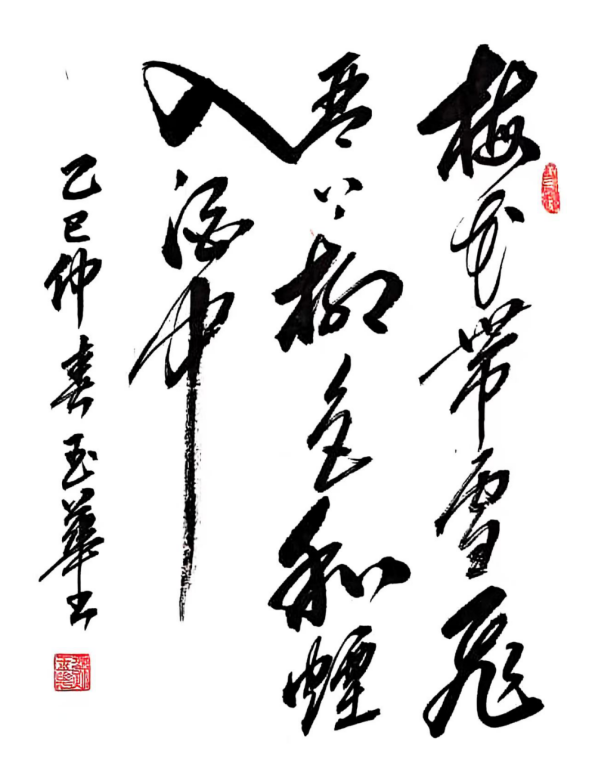 梅花带雪飞
琴上柳色和煙
入酒中
乙巳仲春玉華书